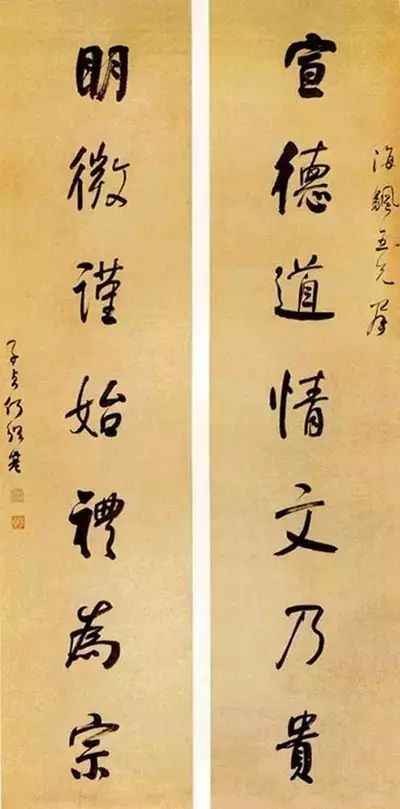 海五兄屬
宣德道情文乃貴
明微謹始禮為宗
子貞何紹基